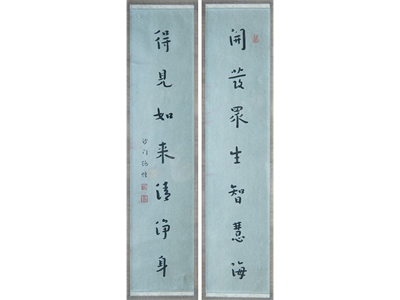 開發眾生智慧海
得見如来清淨身